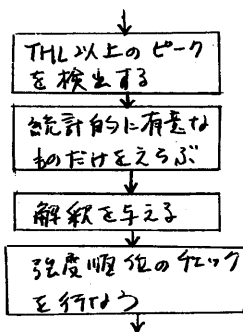 THL以上のピーク
を検出する
統計的に有意な
ものだけをえらぶ
解釈を与える
強度順位のチェック
を行なう